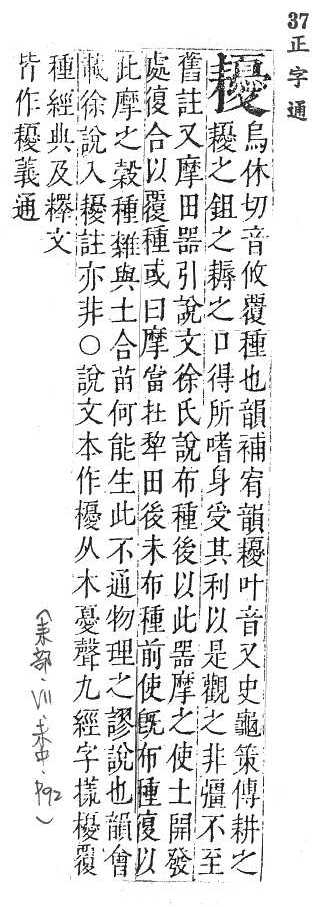 37正字通
耰烏休切音攸覆種也韻補宥韻耰叶音又史龜策傳耕之
耰之鉏之耨之口得所嗜身受其利以是觀之非彊不至
舊註又摩田器引說文徐氏說布種後以此器摩之使土開發
處復合以覆種或曰摩當在犂田後未布種前使旣布種復以
此摩之榖種雜與土合苗何能生此不通物理之謬說也韻會
載徐說入耰註亦非○說文本作櫌从木憂聲九經字㨾櫌覆
種經典及釋文
皆作耰義通
(耒部·VII·未中·P92)